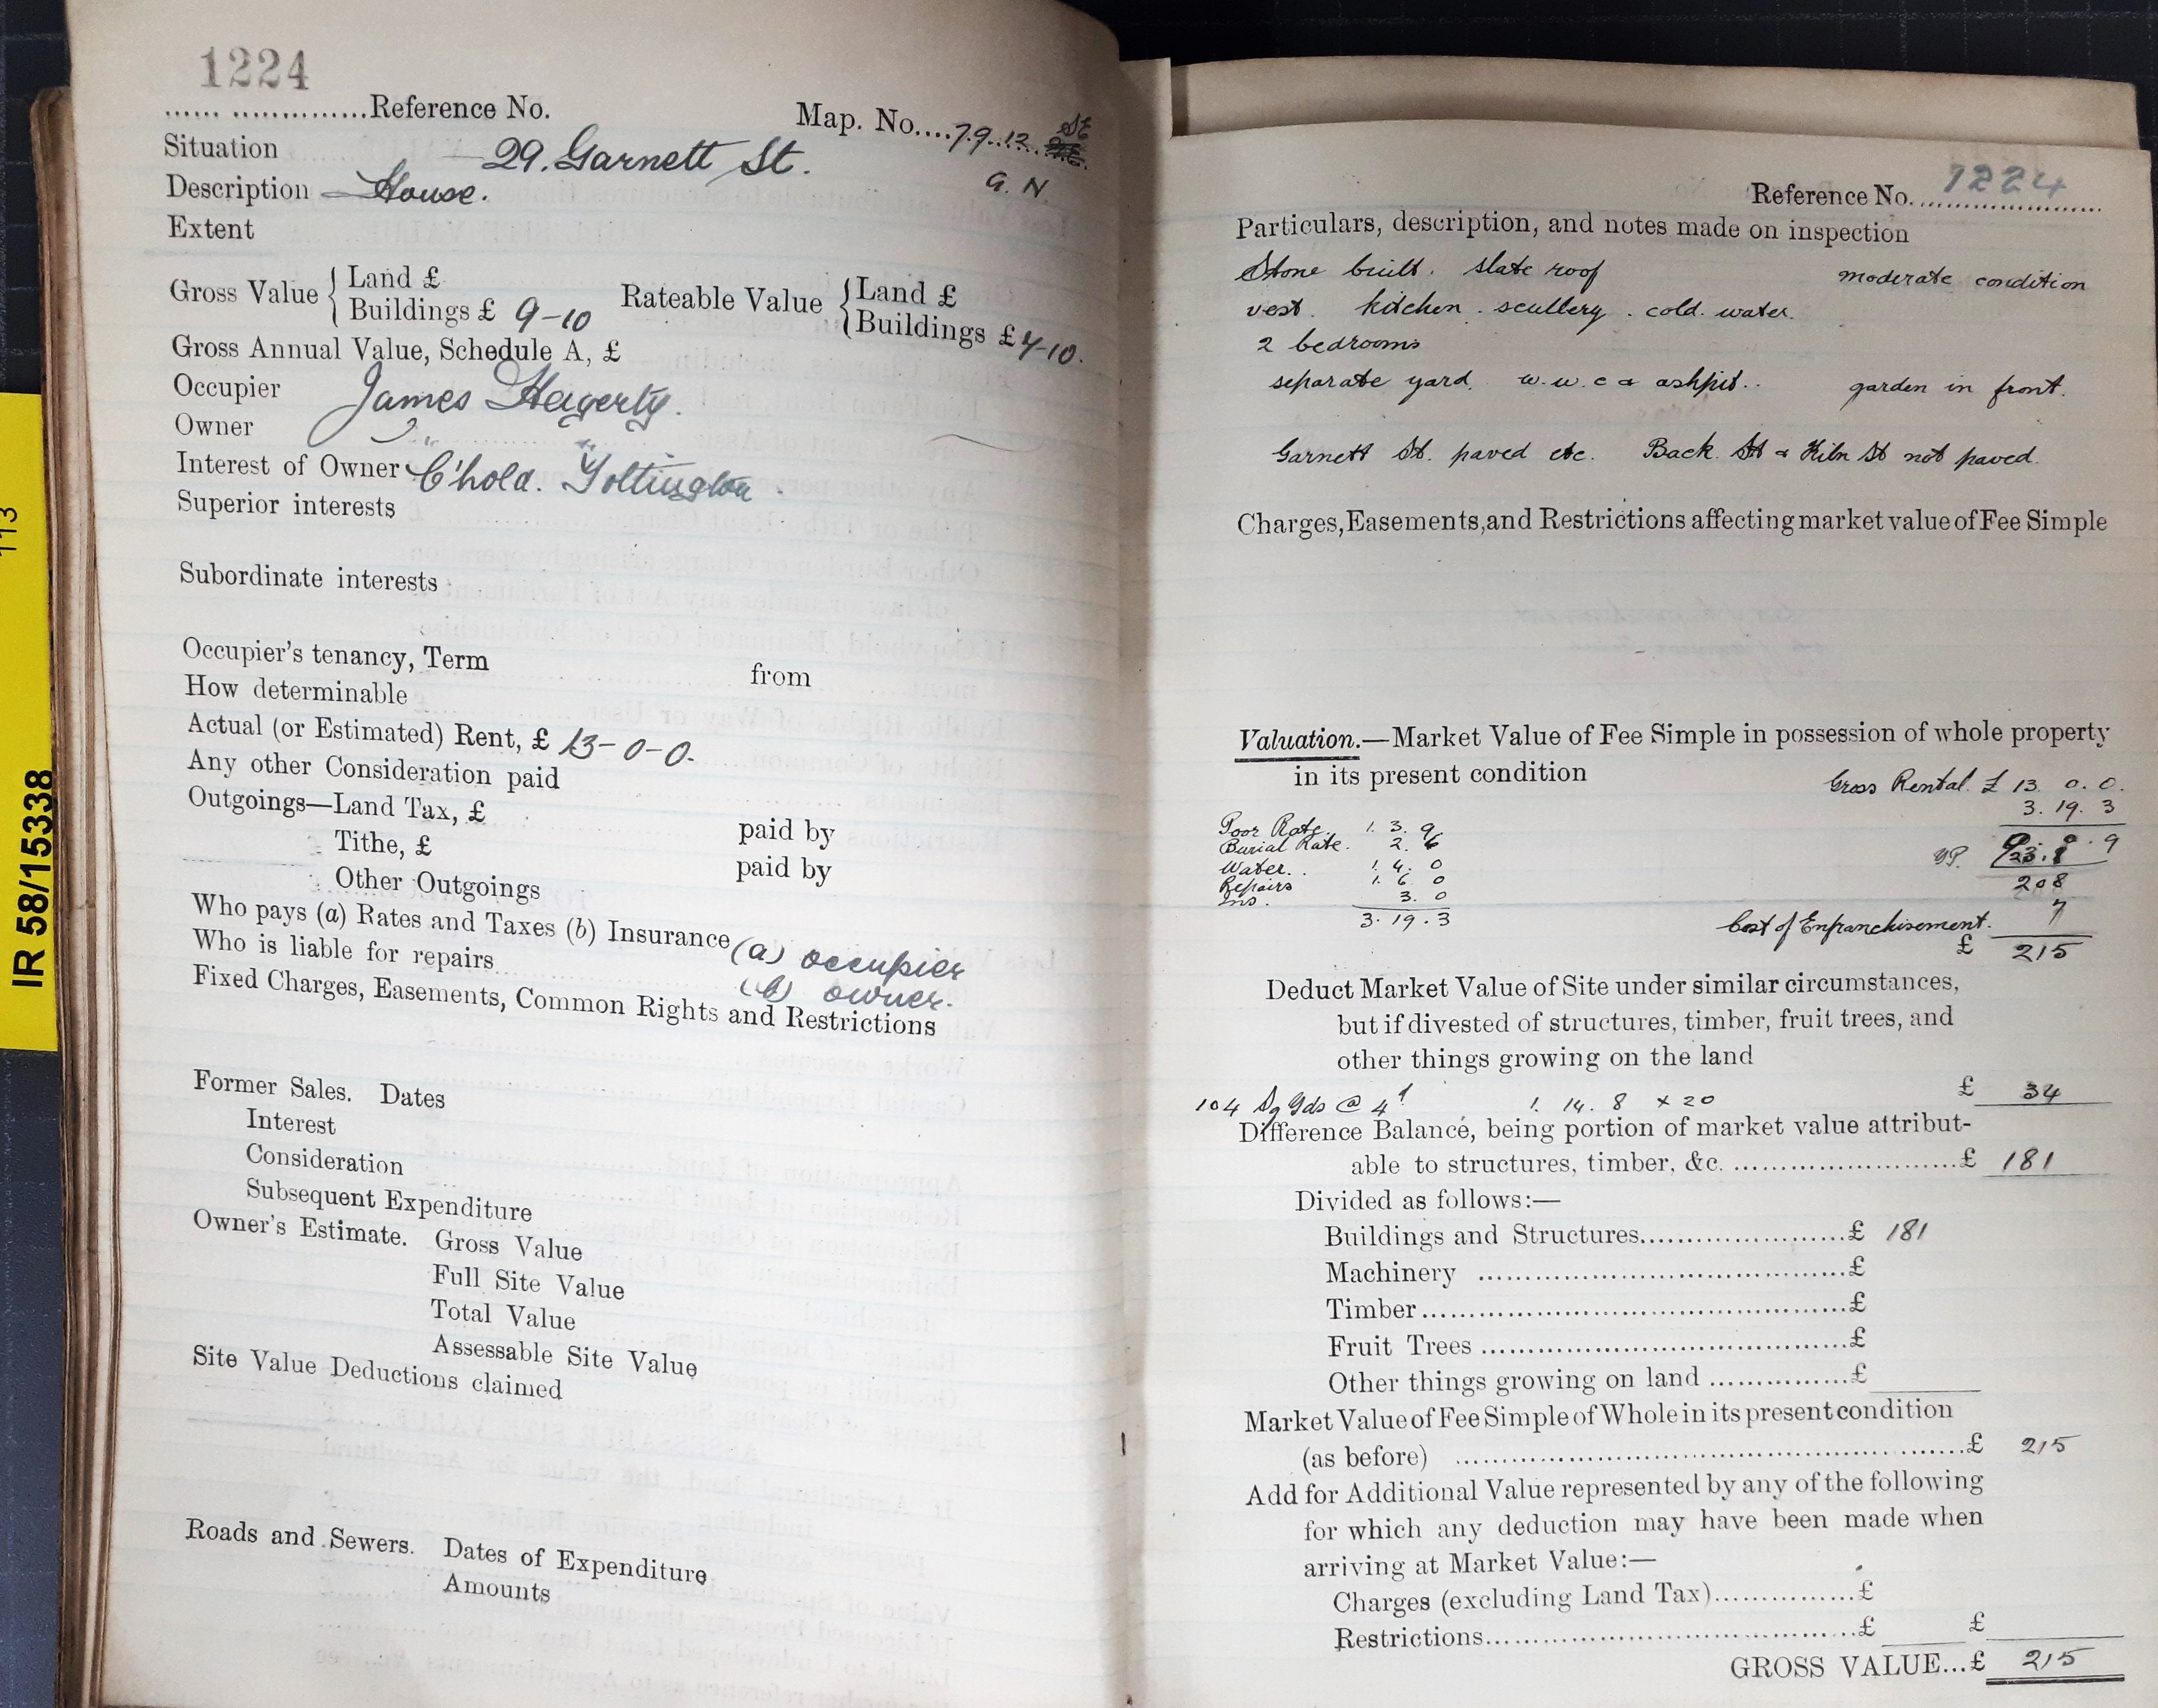 1224
Reference No.
Map. No. 79.12 St
Situation 29. Garnett St.
G. N.
Description House.
Extent
Gross Value { Land £
Buildings £ 9-10
Rateable Value { Land £
Buildings £ 7-10.
Gross Annual Value, Schedule A, £
Occupier James Hagerty.
Owner " "
Interest of Owner C'hold. Tottington.
Superior interests
Subordinate interests
Occupier's tenancy, Term from
How determinable
Actual (or Estimated) Rent, £ 13-0-0.
Any other Consideration paid
Outgoings—Land Tax, £ paid by
Tithe, £ paid by
Other Outgoings
Who pays (a) Rates and Taxes (b) Insurance (a) occupier
Who is liable for repairs (b) owner.
Fixed Charges, Easements, Common Rights and Restrictions
Former Sales. Dates
Interest
Consideration
Subsequent Expenditure
Owner's Estimate. Gross Value
Full Site Value
Total Value
Assessable Site Value
Site Value Deductions claimed
Roads and Sewers. Dates of Expenditure
Amounts
IR 58/15338
113
Reference No. 1224
Particulars, description, and notes made on inspection
Stone built. slate roof moderate condition
vest. kitchen. scullery. cold. water.
2 bedrooms
separate yard. w.w.c & ashpit.. garden in front.
Garnett St. paved etc. Back St & Kiln St not paved.
Charges, Easements, and Restrictions affecting market value of Fee Simple
Valuation.—Market Value of Fee Simple in possession of whole property
in its present condition
Gross Rental. £ 13. 0. 0.
3. 19. 3
Poor Rate. 1. 3. 9.
9. 0. 9
Burial Rate. 2. 6
YP. 23.
Water.. 1. 4. 0
208
Repairs 1. 6. 0
Ins. 3. 0
7
3. 19. 3
Cost of Enfranchisement.
£ 215
Deduct Market Value of Site under similar circumstances,
but if divested of structures, timber, fruit trees, and
other things growing on the land
104 Sq Yds @ 4d 1. 14. 8 x 20 £ 34
Difference Balance, being portion of market value attribut-
able to structures, timber, &c. £ 181
Divided as follows:—
Buildings and Structures £ 181
Machinery £
Timber £
Fruit Trees £
Other things growing on land £
Market Value of Fee Simple of Whole in its present condition
(as before) £ 215
Add for Additional Value represented by any of the following
for which any deduction may have been made when
arriving at Market Value:—
Charges (excluding Land Tax) £
Restrictions £ £
GROSS VALUE...£ 215